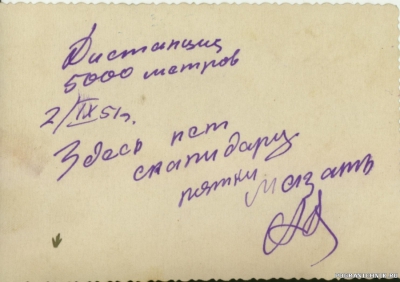 Дистанция
5000 метров
2/IX 51г.
Здесь нет
скапидару
пятки мазать